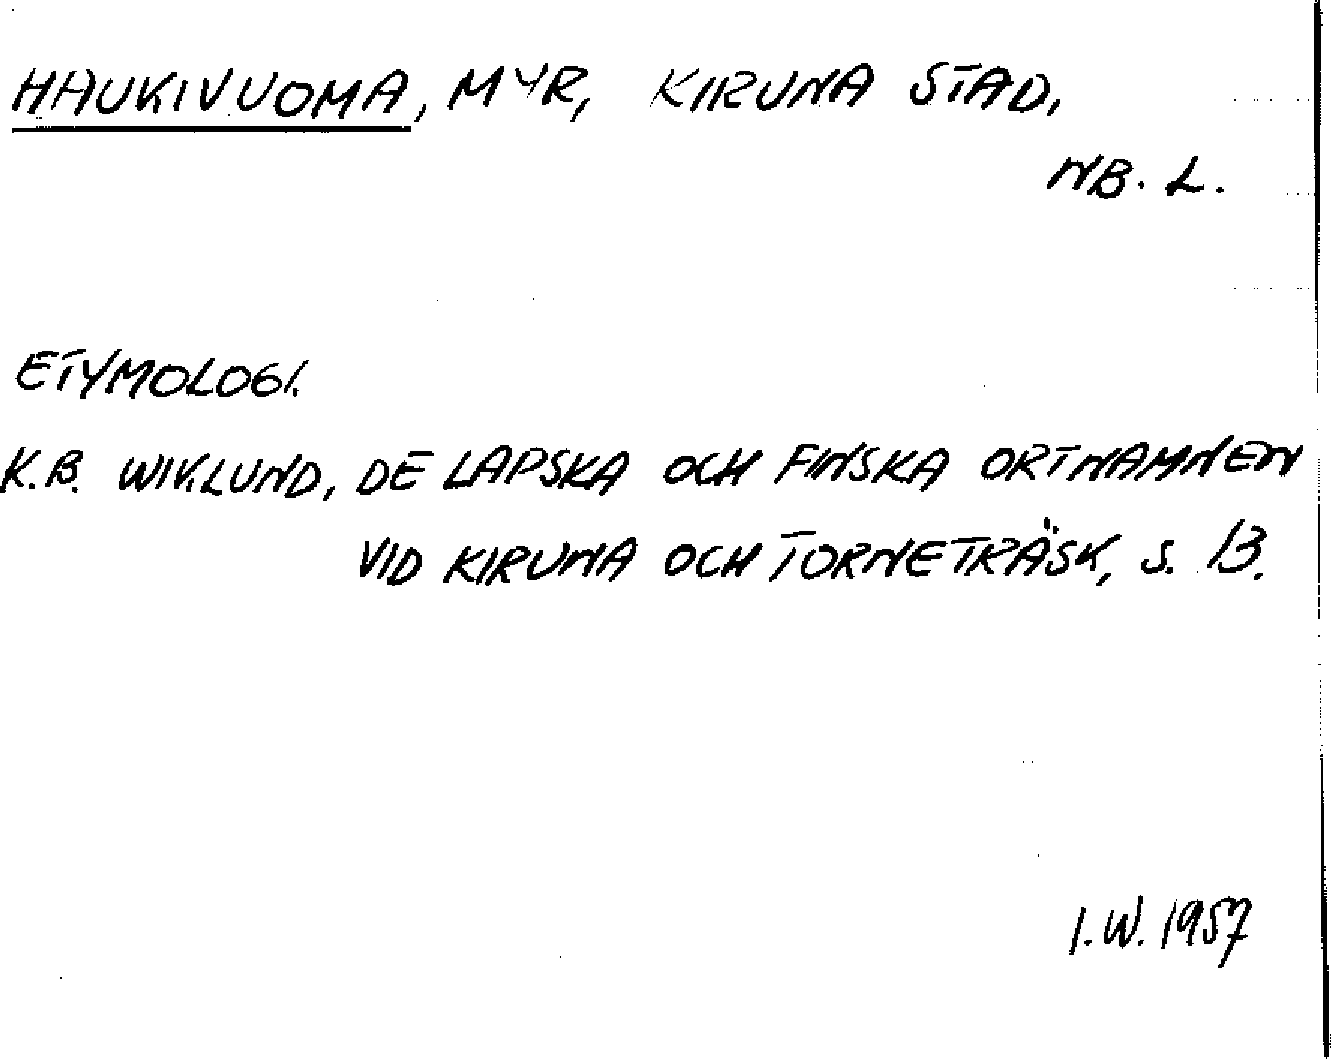 HAUKIVUOMA, MYR, KIRUNA STAD,
NB. L.
ETYMOLOGI.
K.B. WIKLUND, DE LAPSKA OCH FINSKA ORTNAMNEN
VID KIRUNA OCH TORNETRÄSK, S. 13.
I.W. 1957